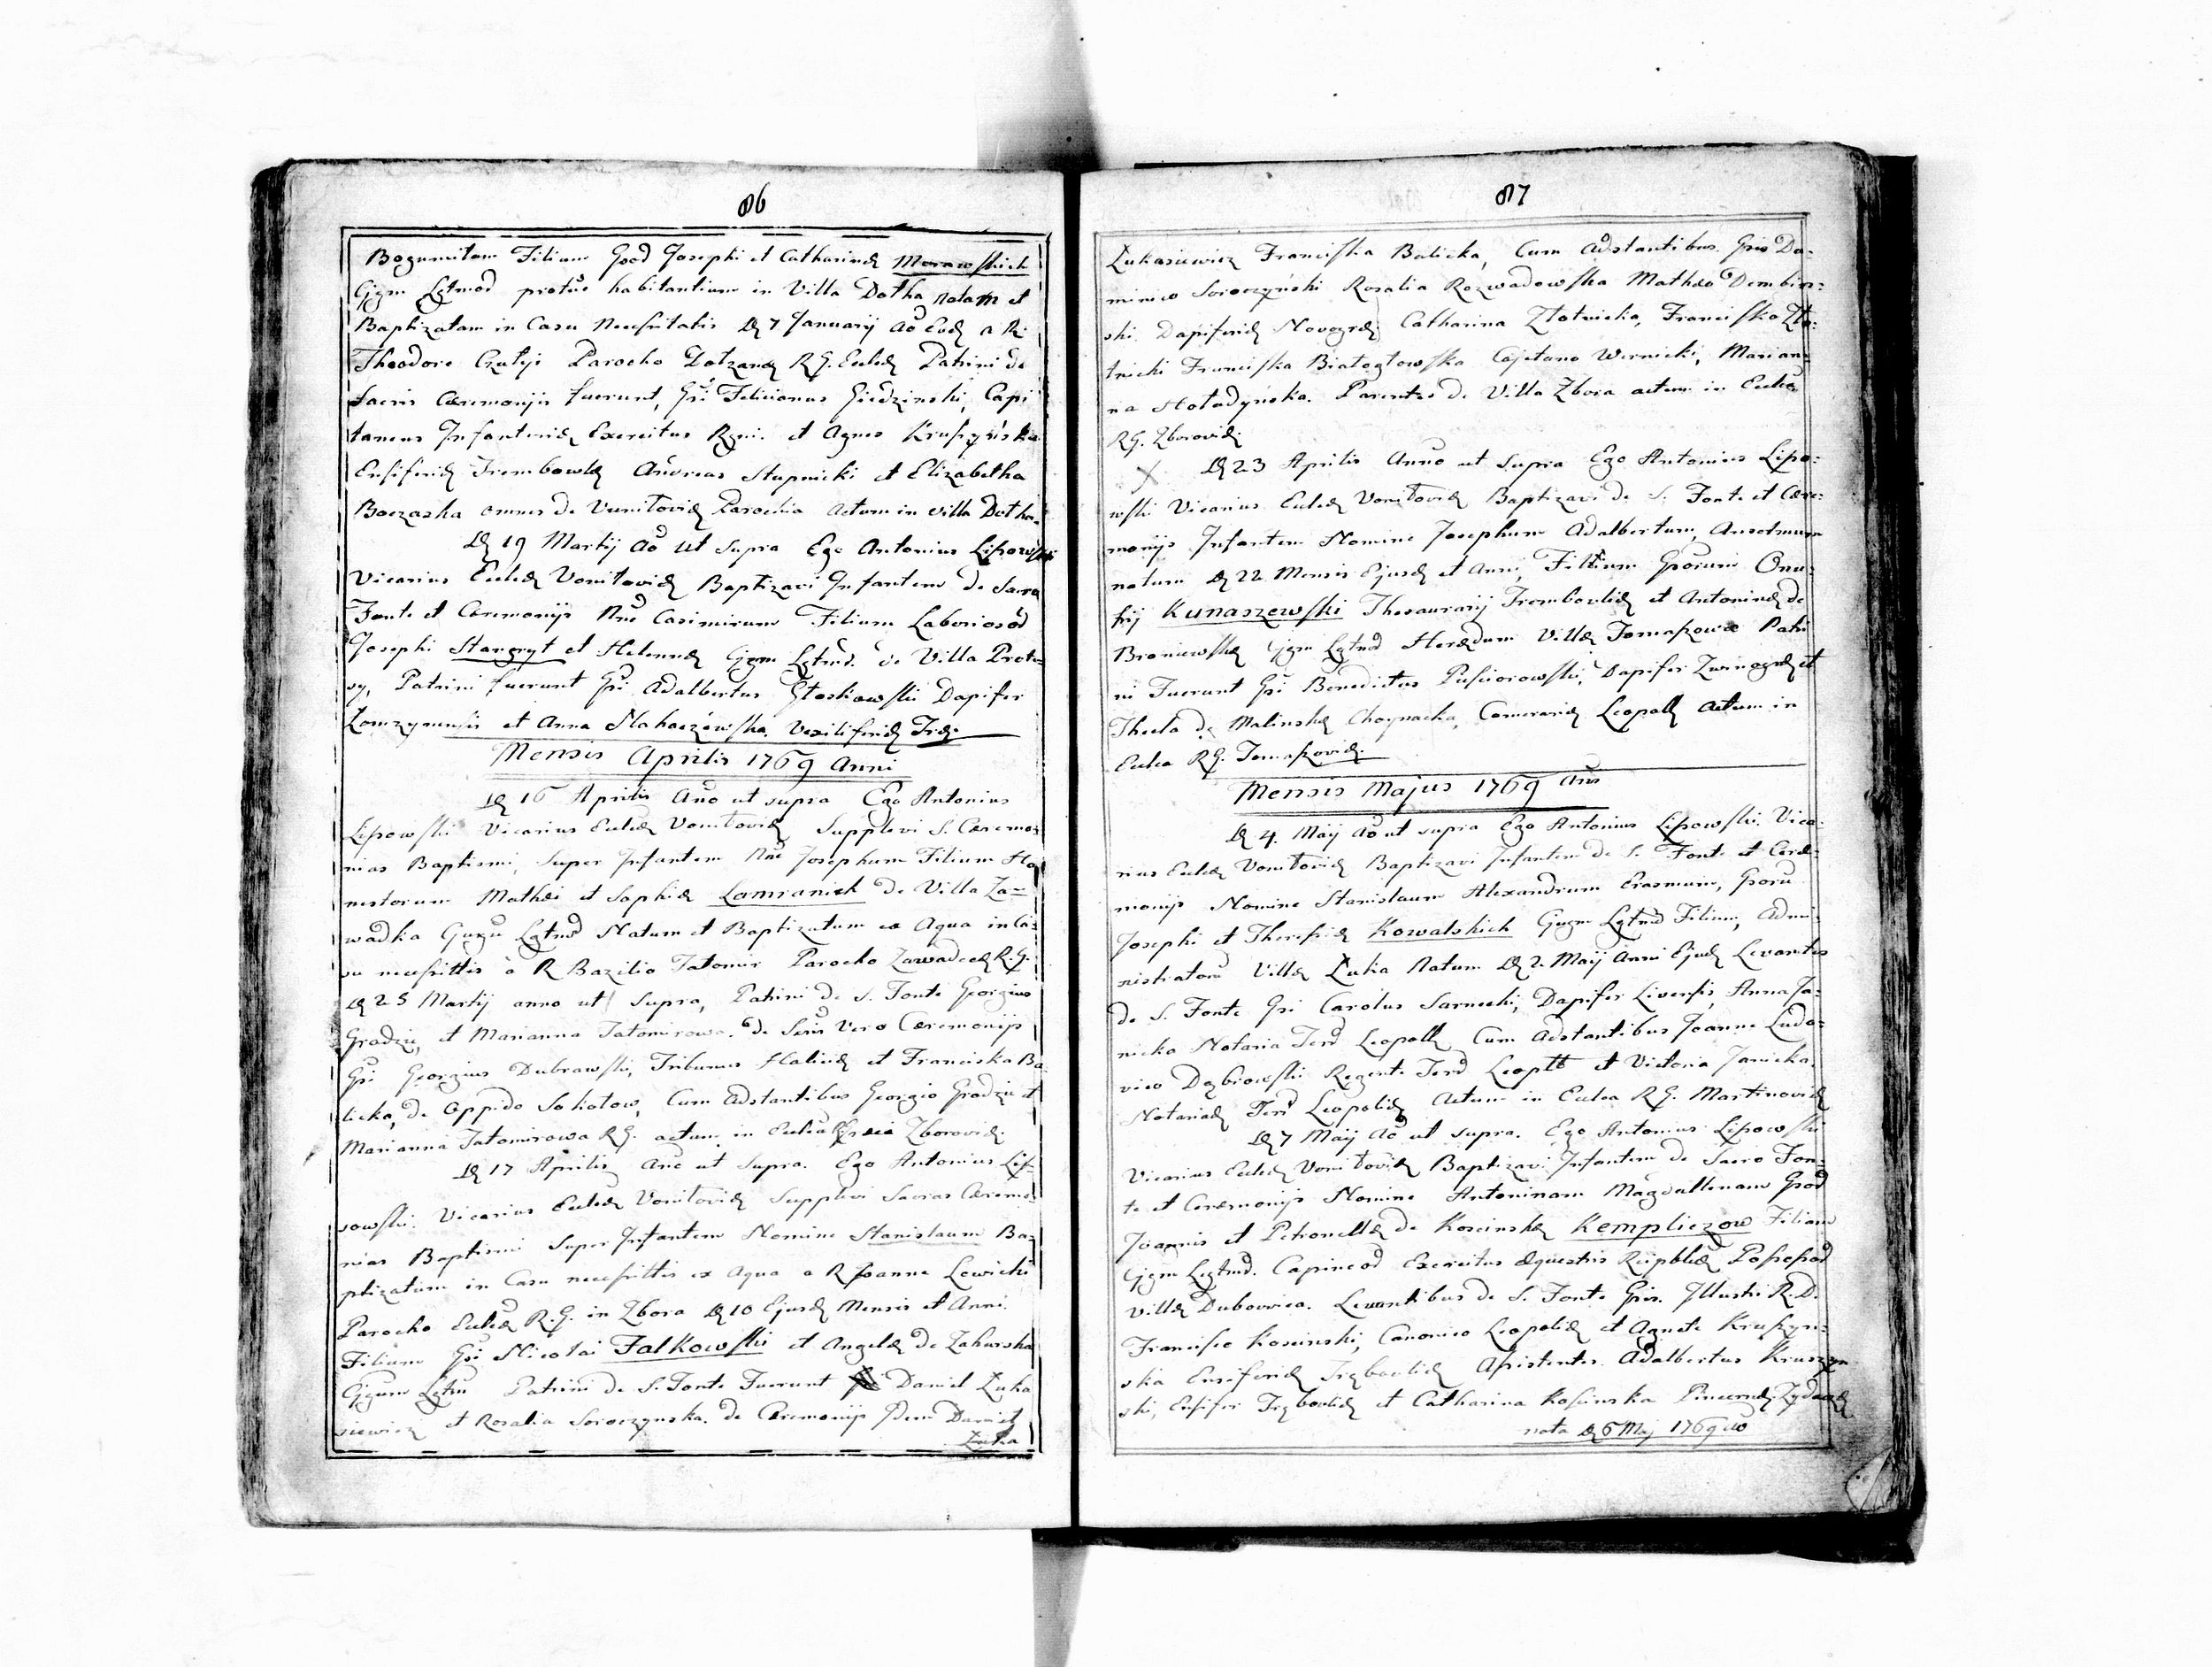 86
Bogumilam Filiam Good Josephi et Catharinæ Morawskich
Cjgm Lgtmod protuc habitantium in Villa Dołha Natam et
Baptizatam in Casu Necessitatis D 7 January Ao Eod a R.
Theodoro Parocho R.G. Eccle Patrini de
Sacris Cæremonijs fuerunt, Gsi Felicianus Giedzinski, Capi
taneus Infanteriæ Exercitus Regni. et Agnes Kruszyńska
Ensiferid Trembowlæ Andreas Stupnicki et Elizabetha
Boczarska omnes de Voniłovie Parochia Actum in villa Dołha.
D 19 Martij Ao ut Supra Ego Antonius Lipowski
Vicarius Ecclæ Voniłovie Baptizavi Infantem de Sacro
Fonte et Cæremonijs Nne Casimirum Filium Laboriosod
Josephi Stangryt et Helennæ Cjgm Lgtmd. de Villa Prote-
sy, Patrini fuerunt Gsi Adalbertus Głoskowski Dapifer
Łomzynensis et Anna Mahaczewska Vexiliferid Trę.
Mensis Aprilis 1769 Anni
D 16 Aprilis Ano ut supra Ego Antonius
Lipowski Vicarius Ecclæ Voniłovie Supplevi S. Cæremo-
nias Baptismi, Super Infantem Nne Josephum Filium Ho-
nestorum Mathæi et Sophiæ Lamranich de Villa Za=
wadka Gugu Lgtmd Natum et Baptizatum ex Aqua in Ca-
su necessittis à R Bazilio Tatomir Parocho Zawadced R.G.
D 25 Martij anno ut Supra, Patrini de S. Fonte Georgius
Gradziu, et Marianna Tatomirowa. de Seris Vero Cæremonijs
Gsi Georgius Dubrawski, Tribunus Halicid et Franciska Ba-
licka, de Oppido Sokołow, Cum Adstantibus Georgio Gradziu et
Marianna Tatomirowa RG. actum in Zborovid.
D 17 Aprilis Ano ut Supra. Ego Antonius Lip-
sowski Vicarius Ecclæ Voniłovie Supplevi Sacras Cæremo-
nias Baptismi Super Infantem Nomine Stanislaum Ba-
ptizatum in Casu necessittis ex Aqua a R Joanne Lewicki
Parocho Ecclæ R.G. in Zbora D 10 Ejusd Mensis et Anni.
Filium Gsi Nicolai Falkowski et Angelæ de Zahurska
Cjgum Lgtm Patrini de S. Fonte Fuerunt Daniel Łuka
siewicz et Rosalia Soroczynska. de Cæremonijs Idem Daniel
Łuka
87
Łukasiewicz Franciska Balicka, Cum Adstantibus Gsis Do-
minico Soroczyński Rosalia Rozwadowska Mathæo Dembin-
ski Dapiferid Novogrd. Catharina Złotnicka, Francisko Zło-
tnicki Franciska Białogłowska Cajetano Wernicki, Marian
na Hołodyńska. Parentes de Villa Zbora actum in Ecclea
RG. Zborovid.
X D 23 Aprilis Anno ut Supra Ego Antonius Lipo-
wski Vicarius Ecclæ Voniłovie Baptizavi de S. Fonte et Cære-
monijs Infantem Nomine Josephum Adalbertum, Anselmum
natum D 22 Mensis Ejusd et Anni, Filium Gsorum Onu-
frij Kunaszewski Thesaurarij Trembovlid et Antoninæ de
Broniewskæ Cjgm Lgtmd Hærdum Villæ Tomaszowce Patri
ni Fuerunt Gsi Benedictus Puściorowski, Dapifer Zwinogrd et
Thecla de Malinskæ Choynacka, Comerarid Leopoll Actum in
Ecclea R.G. Tomaszovid.
Mensis Majus 1769 Ani
D 4. Maij Ao ut supra Ego Antonius Lipowski Vica-
rius Ecclæ Voniłovie Baptizavi Infantem de S. Fonte et Cerd-
monijs Nomine Stanislaum Alexandrum Erasmum, Gsoru
Josephi et Theresiæ Kowalskich Gugm Lgtmd Filium, Admi-
nistratoru Villæ Łuka Natum D 2. Maij Anni Ejusd Levantes
de S. Fonte Gsi Carolus Sarnecki, Dapifer Livensis, Anna Ja-
nicka Notaria Terd Leopoll Cum Adstantibus Joanne Ludo-
vico Dąbrowski Regente Terd Leopll et Victoria Janicka,
Notariad Terd Leopolid Actum in Ecclea R.G. Martinovid
D 7 Maij Ao ut supra. Ego Antonius Lipowski
Vicarius Ecclæ Voniłovie Baptizavi Infantem de Sacro Fon-
te et Ceræmonijs Nomine Antoninam Magdallenam Gsod
Joannis et Petronellæ de Koscinskæ Kempliczow Filiam
Cjgm Legtmd. Capineod Exercitus Æquestris Reipblicæ Possessod
Villæ Dubowica. Levantibus de S. Fonte Gsis. Illustri R.D.
Francisco Koscinski, Canonico Leopolid et Agnete Kruszyn-
ska Ensiferid Tręboulid Assistentes Adalbertus Kruszyn
ski, Ensifer Tręboulid et Catharina Kosinska Pincernd Zydacz
nata D 6 Maj 1769